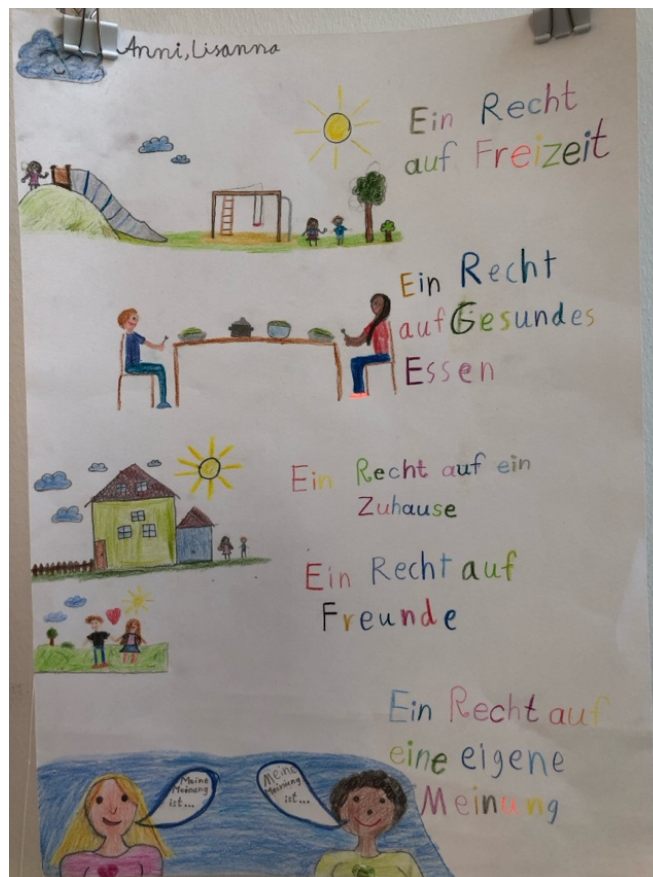 Anni, Lisanna
Ein Recht
auf Freizeit
Ein Recht
auf Gesundes
Essen
Ein Recht auf ein
Zuhause
Ein Recht auf
Freunde
Ein Recht auf
eine eigene
Meinung
Meine
Meinung
ist...
Meine
Meinung
ist...